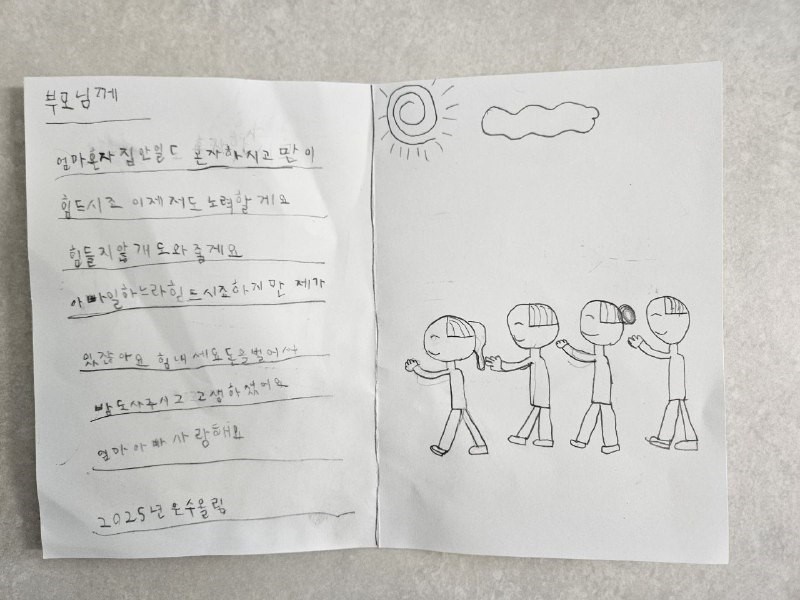 부모님께
엄마혼자 집안일드 혼자하시고 많이
힘드시죠 이제 저도 노력할게요
힘들지않개 도와줄게요
아빠일하느라힘드시조하지만 제가
있잖아요 힘내세요돈을벌어서
밥도사주시고 고생하셨어요
엄마아빠사랑해요
2025년은수올림